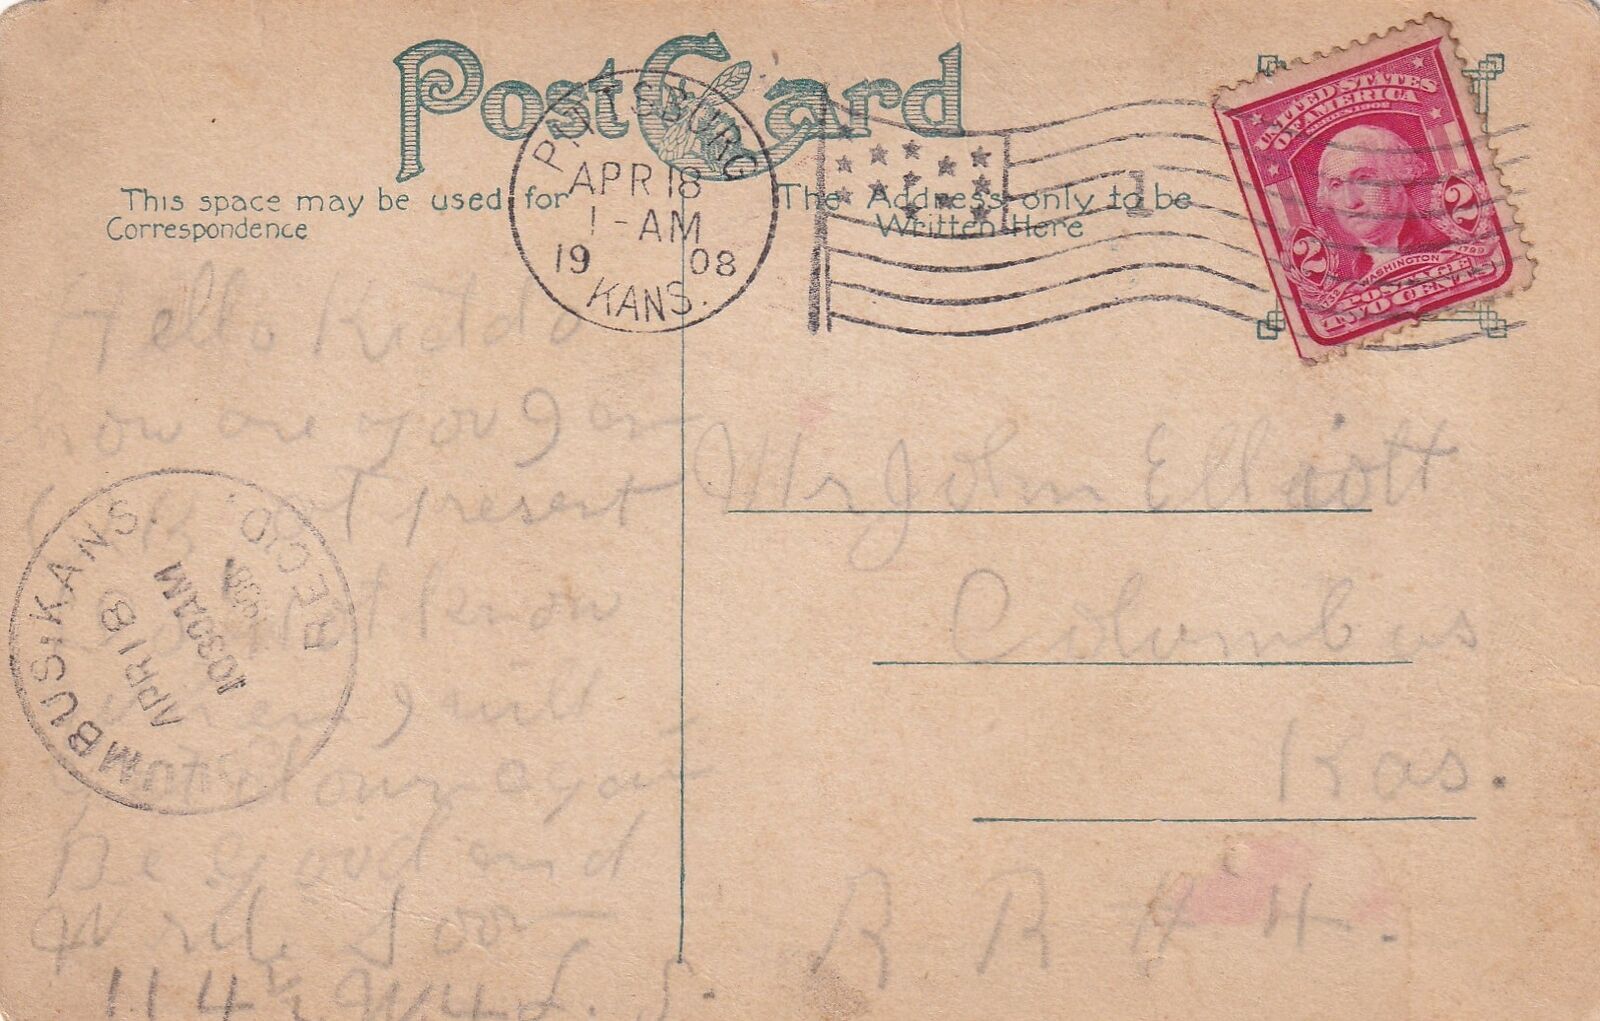 Post Card
This space may be used for
Correspondence
The Address only to be
Written Here
PITTSBURG
APR 18
1-AM
19 08
KANS.
1
UNITED STATES
OF AMERICA
SERIES 1902
2 2
WASHINGTON
1799
POSTAGE
TWO CENTS
Hello Kiddo
how are you I am
at present
know
when I will
be good and
write soon
114½ W 4 St. S.
UMBUS, KANS.
APR 18
1030AM
1908
REC'D
Mr John Elliott
Columbus
Kas.
R R # 4.